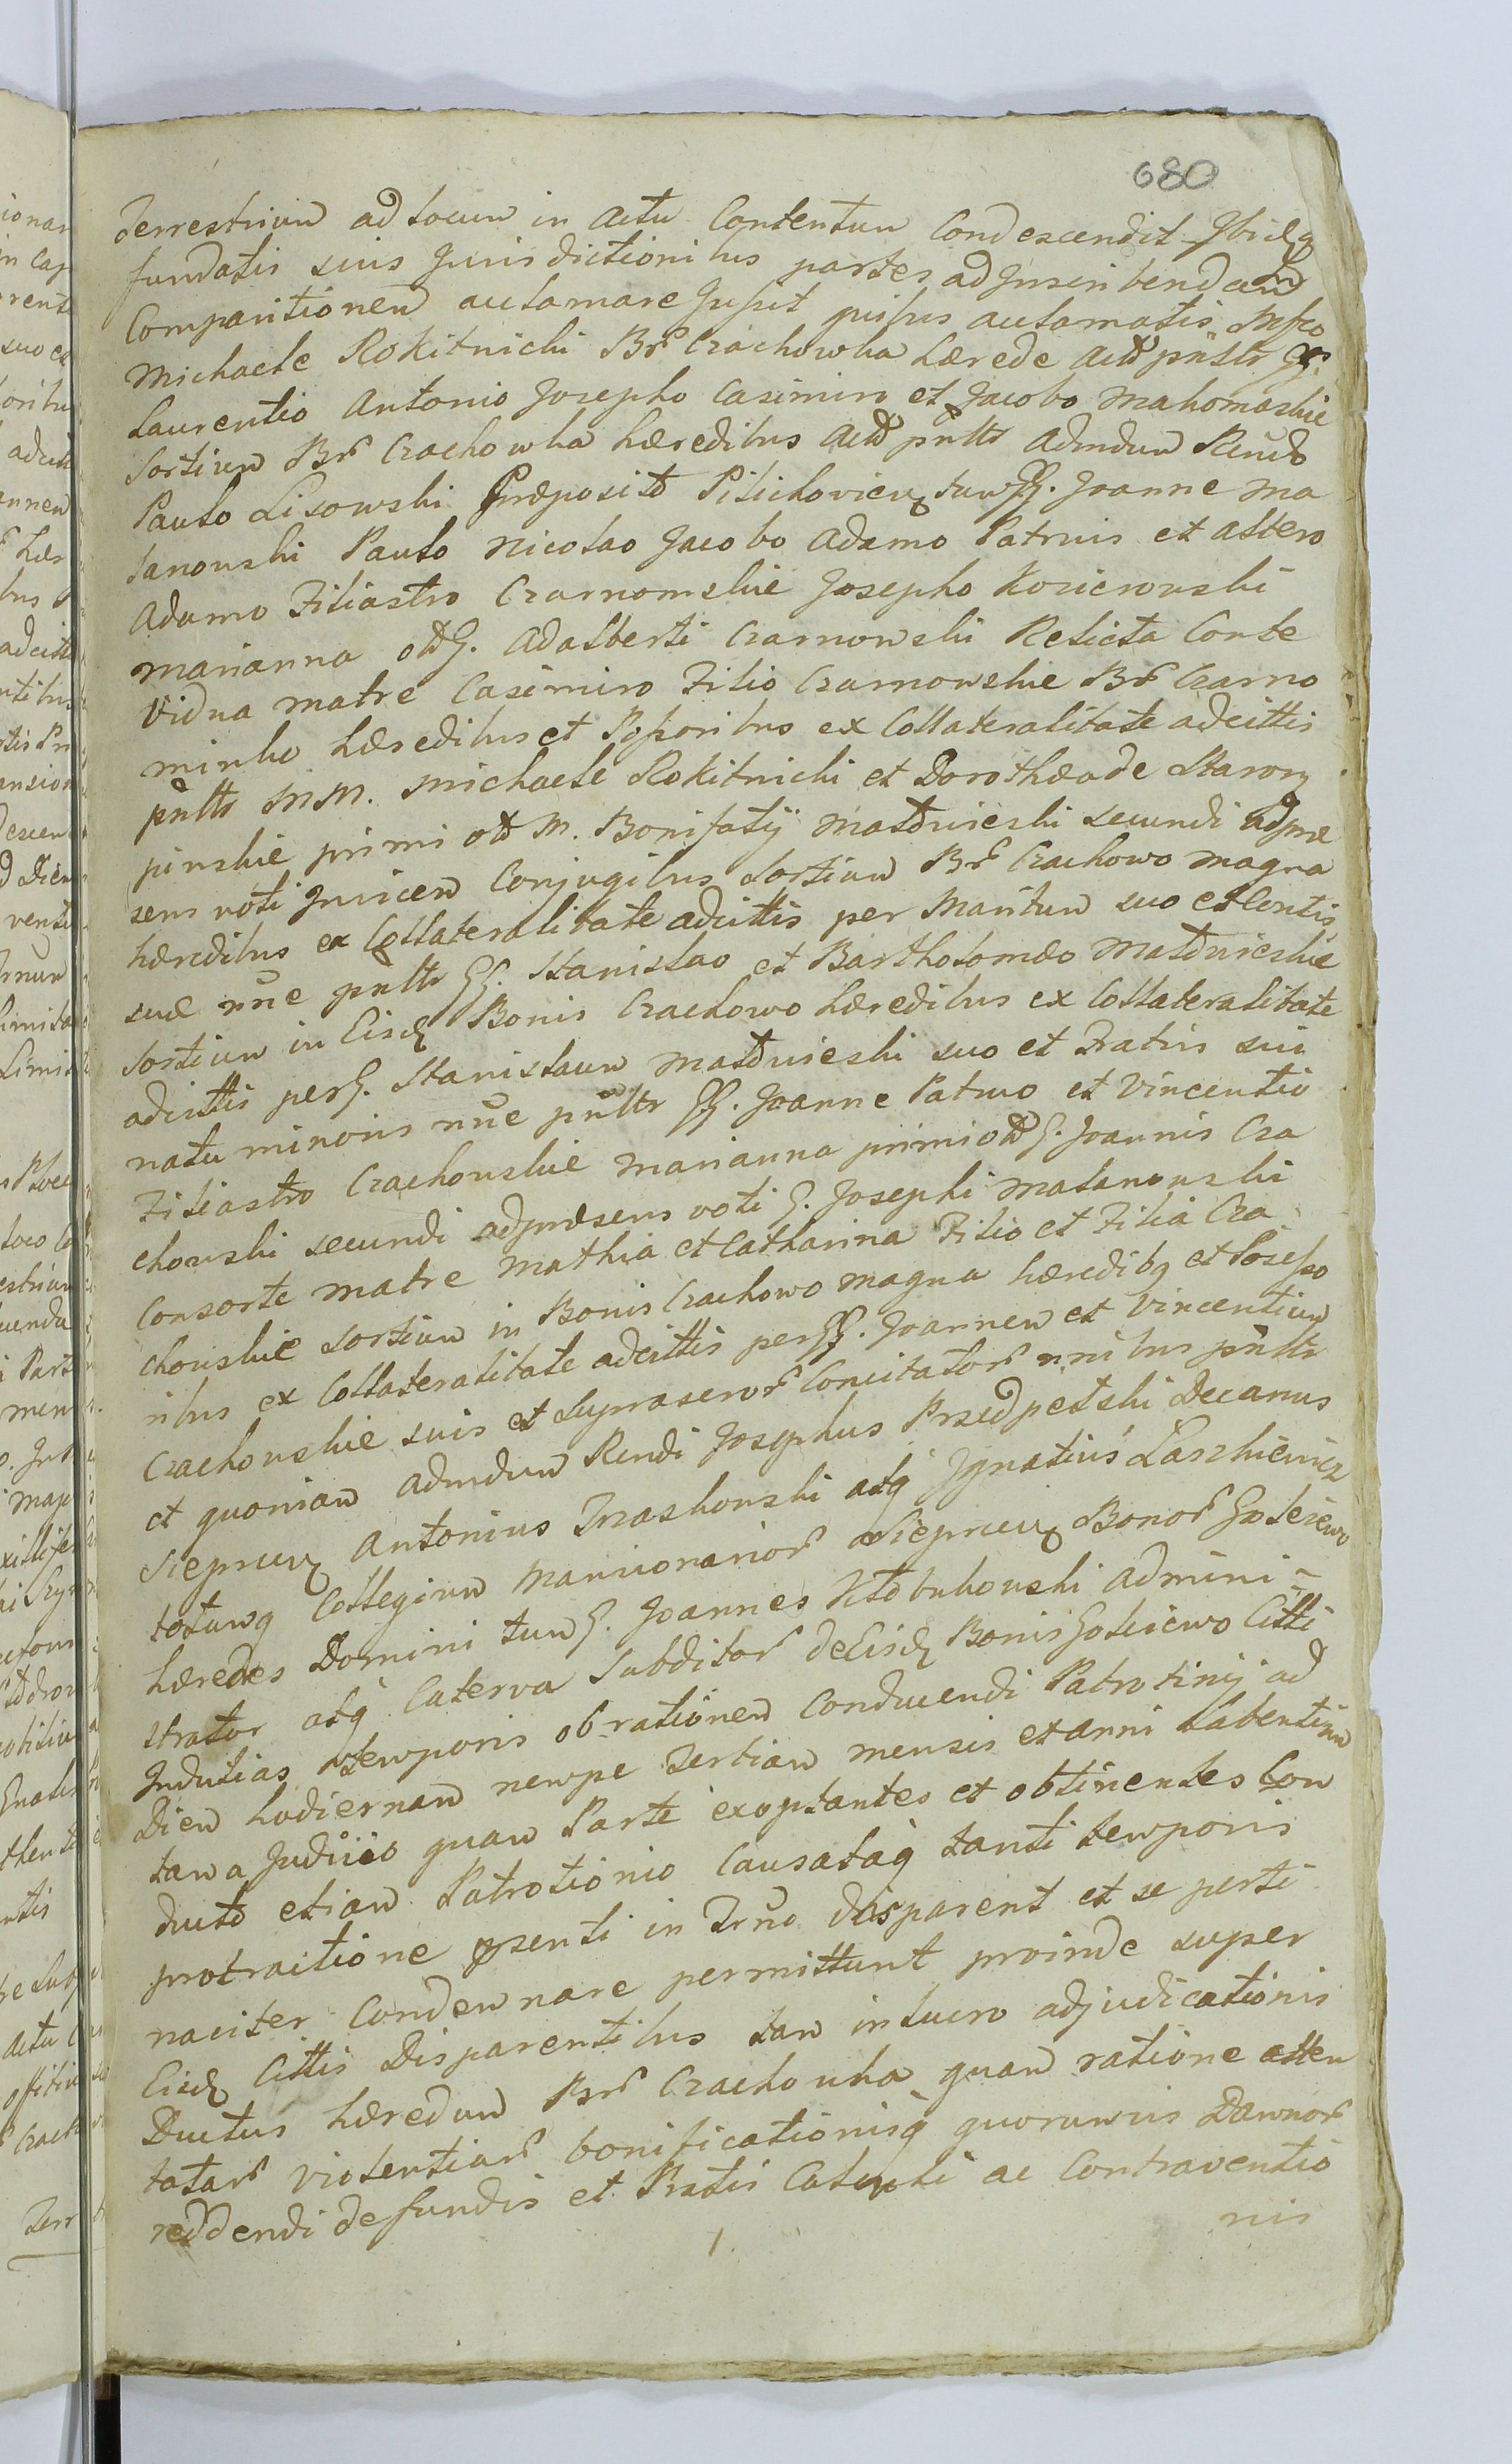 680
Terrestrium ad locum in actu Contentum Condescendit Ibidq
fundatis suis Jurisdictionibus partes ad Inscribendam
Comparitionem acclamare Jussit quibus acclamatis Mfco
Michaele Rokitnicki Br Crachowka hærede actt pntts GG.
Laurentio Antonio Josepho Casimiro et Jacobo Mahomaskie
sortium Br Crachowka hæredibus actt pntts admdum Rendo
Paulo Lisowski Præposito Pilichovien tum GG. Joanne Ma
lanowski Paulo Nicolao Jacobo Adamo Patruis et altero
Adamo Filiastro Czarnomskie Josepho Kozierowski
Marianna ott G. Adalberti Czarnowski Relicta Conte
Vidua matre Casimiro Filio Czarnowskie Br Czarno
minko hæredibus et Possoribus ex Collateralitate adcittis
pntts MM. Michaele Rokitnicki et Dorothea de Starorz
pinskie primi ott M. Bonifatij Mastwieski secundi adpræ
sens voti Invicem Conjugibus sortium Br Crachowo magna
hæredibus ex Collateralitate adcittis per Maritum suo et Contis
suæ nne pntts GG. Stanislao et Bartholomæo Mastwieskie
sortium in Eisd Bonis Crachowo hæredibus ex Collateralitate
adcittis per G. Stanislaum Mastwieski suo et Fratris sui
natu minoris nne pntts GG. Joanne Patruo et Vincentio
Filiastro Crachowskie Marianna primi ott G. Joannis Cra
chowski secundi adpræsens voti G. Josephi Malanowski
Consorte matre Mathia et Catharina Filio et Filia Cra
chowskie sortium in Bonis Crachowo magna hæredibq et Possesso
ribus ex Collateralitate adcittis per GG. Joannem et Vincentium
Crachowskie suis et supraser Concitator nnibus pntts
et quoniam admdum Rendi Josephus Przedpelski Decanus
Sieprcen Antonius Traskowski atq Ignatius Laszkiewicz
totumq Collegium Mansionarior Sieprcen Bonor Goleiewo
hæredes Domini tum G. Joannes Kłobukowski Admini-
strator atq Caterva Subditor de Eisd Bonis Goleiewo Citti
Indutias temporis ob rationem Conducendi Patrocinij ad
Diem hodiernam nempe tertiam mensis et anni labentium
tam a Judicio quam Parte exoptantes et obtinentes Con
ducto etiam Patrocionio Causataq tanti temporis
protractione psenti in Trno disparent et se perti
naciter Condemnare permittunt proinde super
Eisd Cittis Disparentibus tam in lucro adjudicationis
Ductus hæredum Br Crachowka quam ratione atten
tatar violentiar bonificationisq quorumvis Damnor
reddendi defundis et Pratis Calculi ac Contraventio
nis